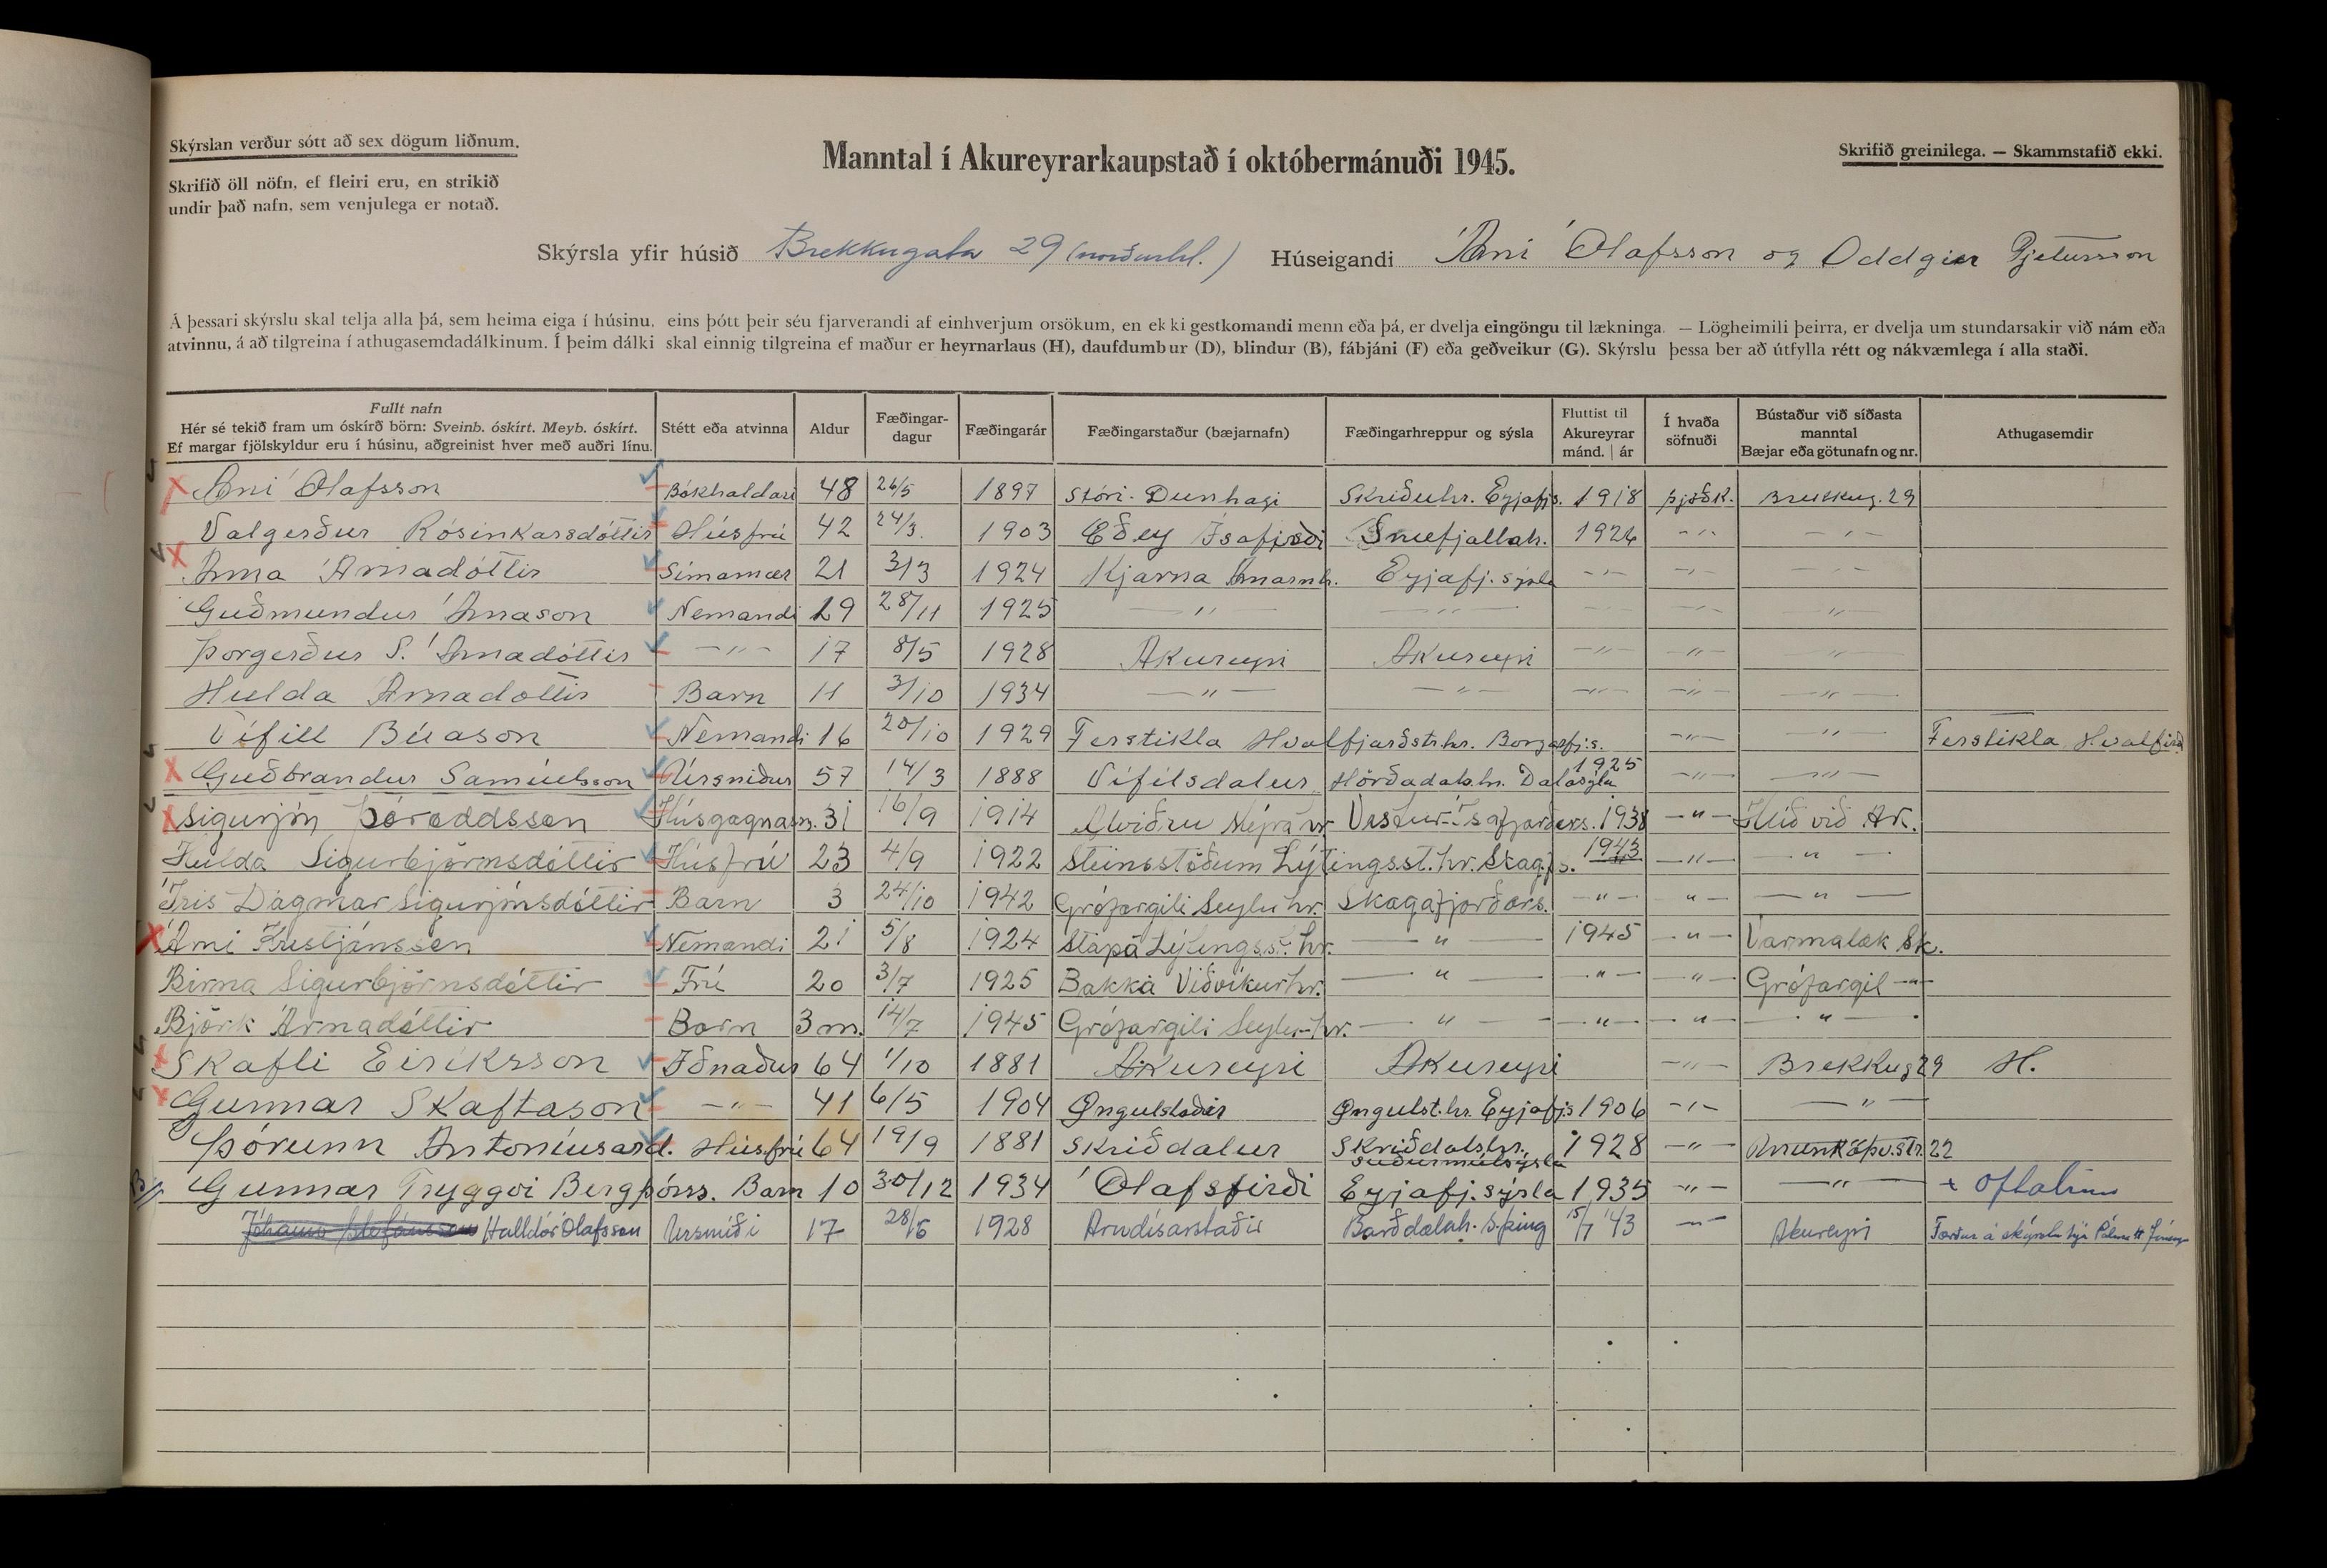 Skýrslan verður sótt að sex dögum liðnum.
Skrifið öll nöfn, ef fleiri eru, en strikið
undir það nafn, sem venjulega er notað.
Manntal í Akureyrarkaupstað í októbermánuði 1945.
Skrifið greinilega. — Skammstafið ekki.
Skýrsla yfir húsið Brekkugata 29 (norðurhl.) Húseigandi Árni Ólafsson og Oddgeir Pjetursson
Á þessari skýrslu skal telja alla þá, sem heima eiga í húsinu, eins þótt þeir séu fjarverandi af einhverjum orsökum, en ekki gestkomandi menn eða þá, er dvelja eingöngu til lækninga. — Lögheimili þeirra, er dvelja um stundarsakir við nám eða
atvinnu, á að tilgreina í athugasemdadálkinum. Í þeim dálki skal einnig tilgreina ef maður er heyrnarlaus (H), daufdumbur (D), blindur (B), fábjáni (F) eða geðveikur (G). Skýrslu þessa ber að útfylla rétt og nákvæmlega í alla staði.
Fullt nafn
Hér sé tekið fram um óskírð börn: Sveinb. óskírt. Meyb. óskírt.
Ef margar fjölskyldur eru í húsinu, aðgreinist hver með auðri línu.
Stétt eða atvinna
Aldur
Fæðingar-
dagur
Fæðingarár
Fæðingarstaður (bæjarnafn)
Fæðingarhreppur og sýsla
Fluttist til
Akureyrar
mánd. | ár
Í hvaða
söfnuði
Bústaður við síðasta
manntal
Bæjar eða götunafn og nr.
Athugasemdir
Árni Ólafsson Bókhaldari 48 26/5 1897 Stóri-Dunhagi Skriðuhr. Eyjafjs. 1918 þjóðk. Brekkug. 29
Valgerður Rósinkarsdóttir Húsfrú 42 24/3 1903 Eðey Ísafirði Snæfjallah. 1926 -"- -"-
Anna Árnadóttir Símamær 21 3/3 1924 Kjarna Arnarnh. Eyjafj.sýsla -"- -"- -"-
Guðmundur Árnason Nemandi 19 28/11 1925 -"- -"- -"- -"- -"-
Þorgerður S. Árnadóttir -"- 17 8/5 1928 Akureyri Akureyri -"- -"- -"-
Hulda Árnadóttir Barn 11 3/10 1934 -"- -"- -"- -"- -"-
Vífill Búason Nemandi 16 20/10 1929 Ferstikla Hvalfjarðstr.hr. Borgarfj.s. -"- -"- Ferstikla Hvalfirð
Guðbrandur Samúelsson Úrsmiður 57 14/3 1888 Vífilsdalur Hörðadals.hr. Dalasýslu 1925 -"- -"-
Sigurjón Þóroddsson Húsgagnasm. 31 16/9 1914 Alviðru Mýrahr Vestur-Ísafjarðars. 1938 -"- Hlíð við Ak.
Hulda Sigurbjörnsdóttir Húsfrú 23 4/9 1922 Steinsstöðum Lýtingsst.hr. Skagfs. 1943 -"- -"-
Íris Dagmar Sigurjónsdóttir Barn 3 24/10 1942 Grófargili Seyluhr. Skagafjarðars. -"- -"- -"-
Árni Kristjánsson Nemandi 21 5/8 1924 Stapa Lýtingsst. hr. -"- 1945 -"- Varmalæk Sk.
Birna Sigurbjörnsdóttir Frú 20 3/7 1925 Bakka Viðvíkurhr. -"- -"- -"- Grófargil -"-
Björk Árnadóttir Barn 3 m. 14/7 1945 Grófargili Seyluhr. -"- -"- -"- -"-
Skafti Eiríksson Iðnaður 64 1/10 1881 Akureyri Akureyri -"- Brekkug 29 H.
Gunnar Skaftason -"- 41 6/5 1904 Öngulstaðir Öngulst.hr. Eyjafjs 1906 -"- -"-
Þórunn Antoníusard. Húsfrú 64 19/9 1881 Skriðdalur Skriðdalshr. Suðurmúlasýsla 1928 -"- 22
Gunnar Tryggvi Bergþórss. Barn 10 30/12 1934 Ólafsfirði Eyjafj.sýsla 1935 -"- -"- +
Halldór Ólafsson Úrsmíði 17 28/6 1928 Arndísarstaðir Barðdælah. S.þing 15/7 '43 -"- Akureyri